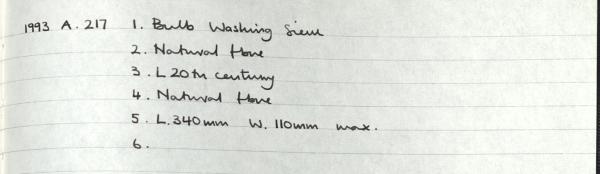 1993 A. 217 1. Bulb Washing Sieve
2. Natural
3. L 20th century
4. Natural
5. L. 340mm W. 110mm max.
6.